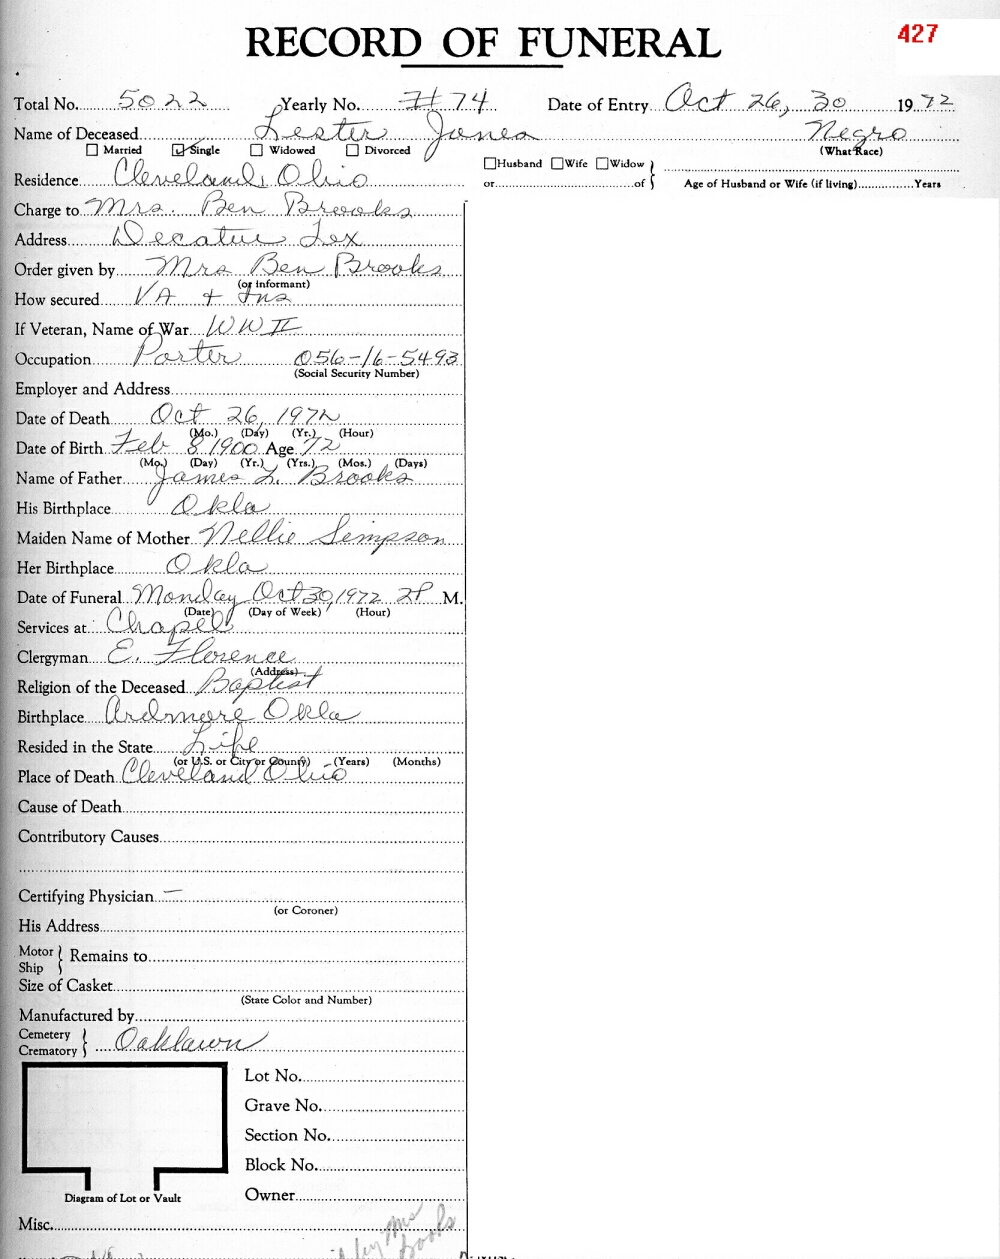 RECORD OF FUNERAL
427
Total No. 5022 Yearly No. #74 Date of Entry Oct 26, 30 1972
Name of Deceased Lester Jones Negro
Married Single Widowed Divorced (What Race)
Husband Wife Widow
Residence Cleveland, Ohio or of Age of Husband or Wife (if living) Years
Charge to Mrs. Ben Brooks
Address Decatur Tex
Order given by Mrs Ben Brooks
(or informant)
How secured VA + Ins
If Veteran, Name of War WW II
Occupation Porter 056-16-5493
(Social Security Number)
Employer and Address
Date of Death Oct 26, 1972
(Mo.) (Day) (Yr.) (Hour)
Date of Birth Feb 8 1900 Age 72
(Mo.) (Day) (Yr.) (Yrs.) (Mos.) (Days)
Name of Father James L. Brooks
His Birthplace Okla
Maiden Name of Mother Nellie Simpson
Her Birthplace Okla
Date of Funeral Monday Oct 30, 1972 2P M.
(Date) (Day of Week) (Hour)
Services at Chapel
Clergyman E. Florence
(Address)
Religion of the Deceased Baptist
Birthplace Ardmore Okla
Resided in the State Life
(or U.S. or City or County) (Years) (Months)
Place of Death Cleveland Ohio
Cause of Death
Contributory Causes
Certifying Physician —
(or Coroner)
His Address
Motor Ship Remains to
Size of Casket
(State Color and Number)
Manufactured by
Cemetery Crematory Oaklawn
Lot No.
Grave No.
Section No.
Block No.
Diagram of Lot or Vault
Owner
Misc.
by Mrs